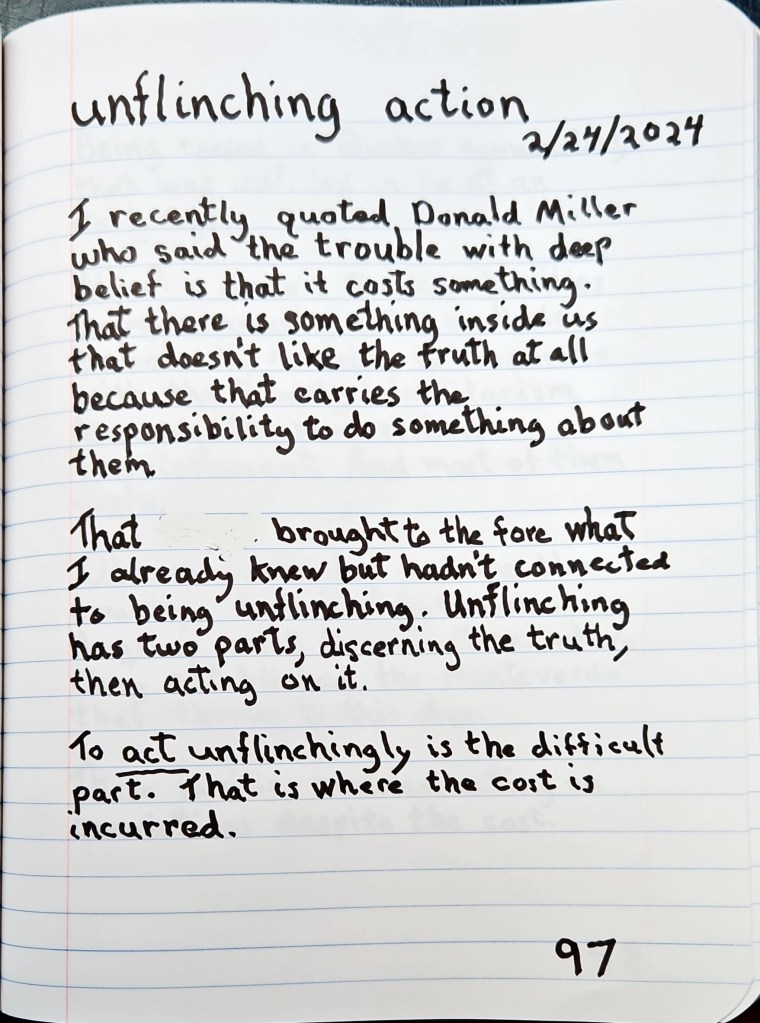 unflinching action
2/24/2024
I recently quoted Donald Miller
who said the trouble with deep
belief is that it costs something.
That there is something inside us
that doesn't like the truth at all
because that carries the
responsibility to do something about
them.
That brought to the fore what
I already knew but hadn't connected
to being unflinching. Unflinching
has two parts, discerning the truth,
then acting on it.
To act unflinchingly is the difficult
part. That is where the cost is
incurred.
97